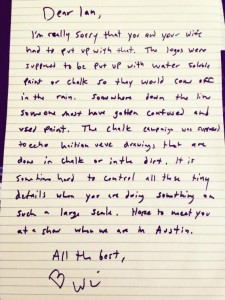 Dear Ian,
I'm really sorry that you and your wife
had to put up with that. The logos were
supposed to be put up with water soluble
paint or chalk so they would come off
in the rain. Somewhere down the line
someone must have gotten confused and
used paint. The chalk campaign was supposed
to echo haitian veve drawings that are
done in chalk or in the dirt. It is
sometimes hard to control all these tiny
details when you are doing something on
such a large scale. Hope to meet you
at a show when we are in Austin.
All the best,